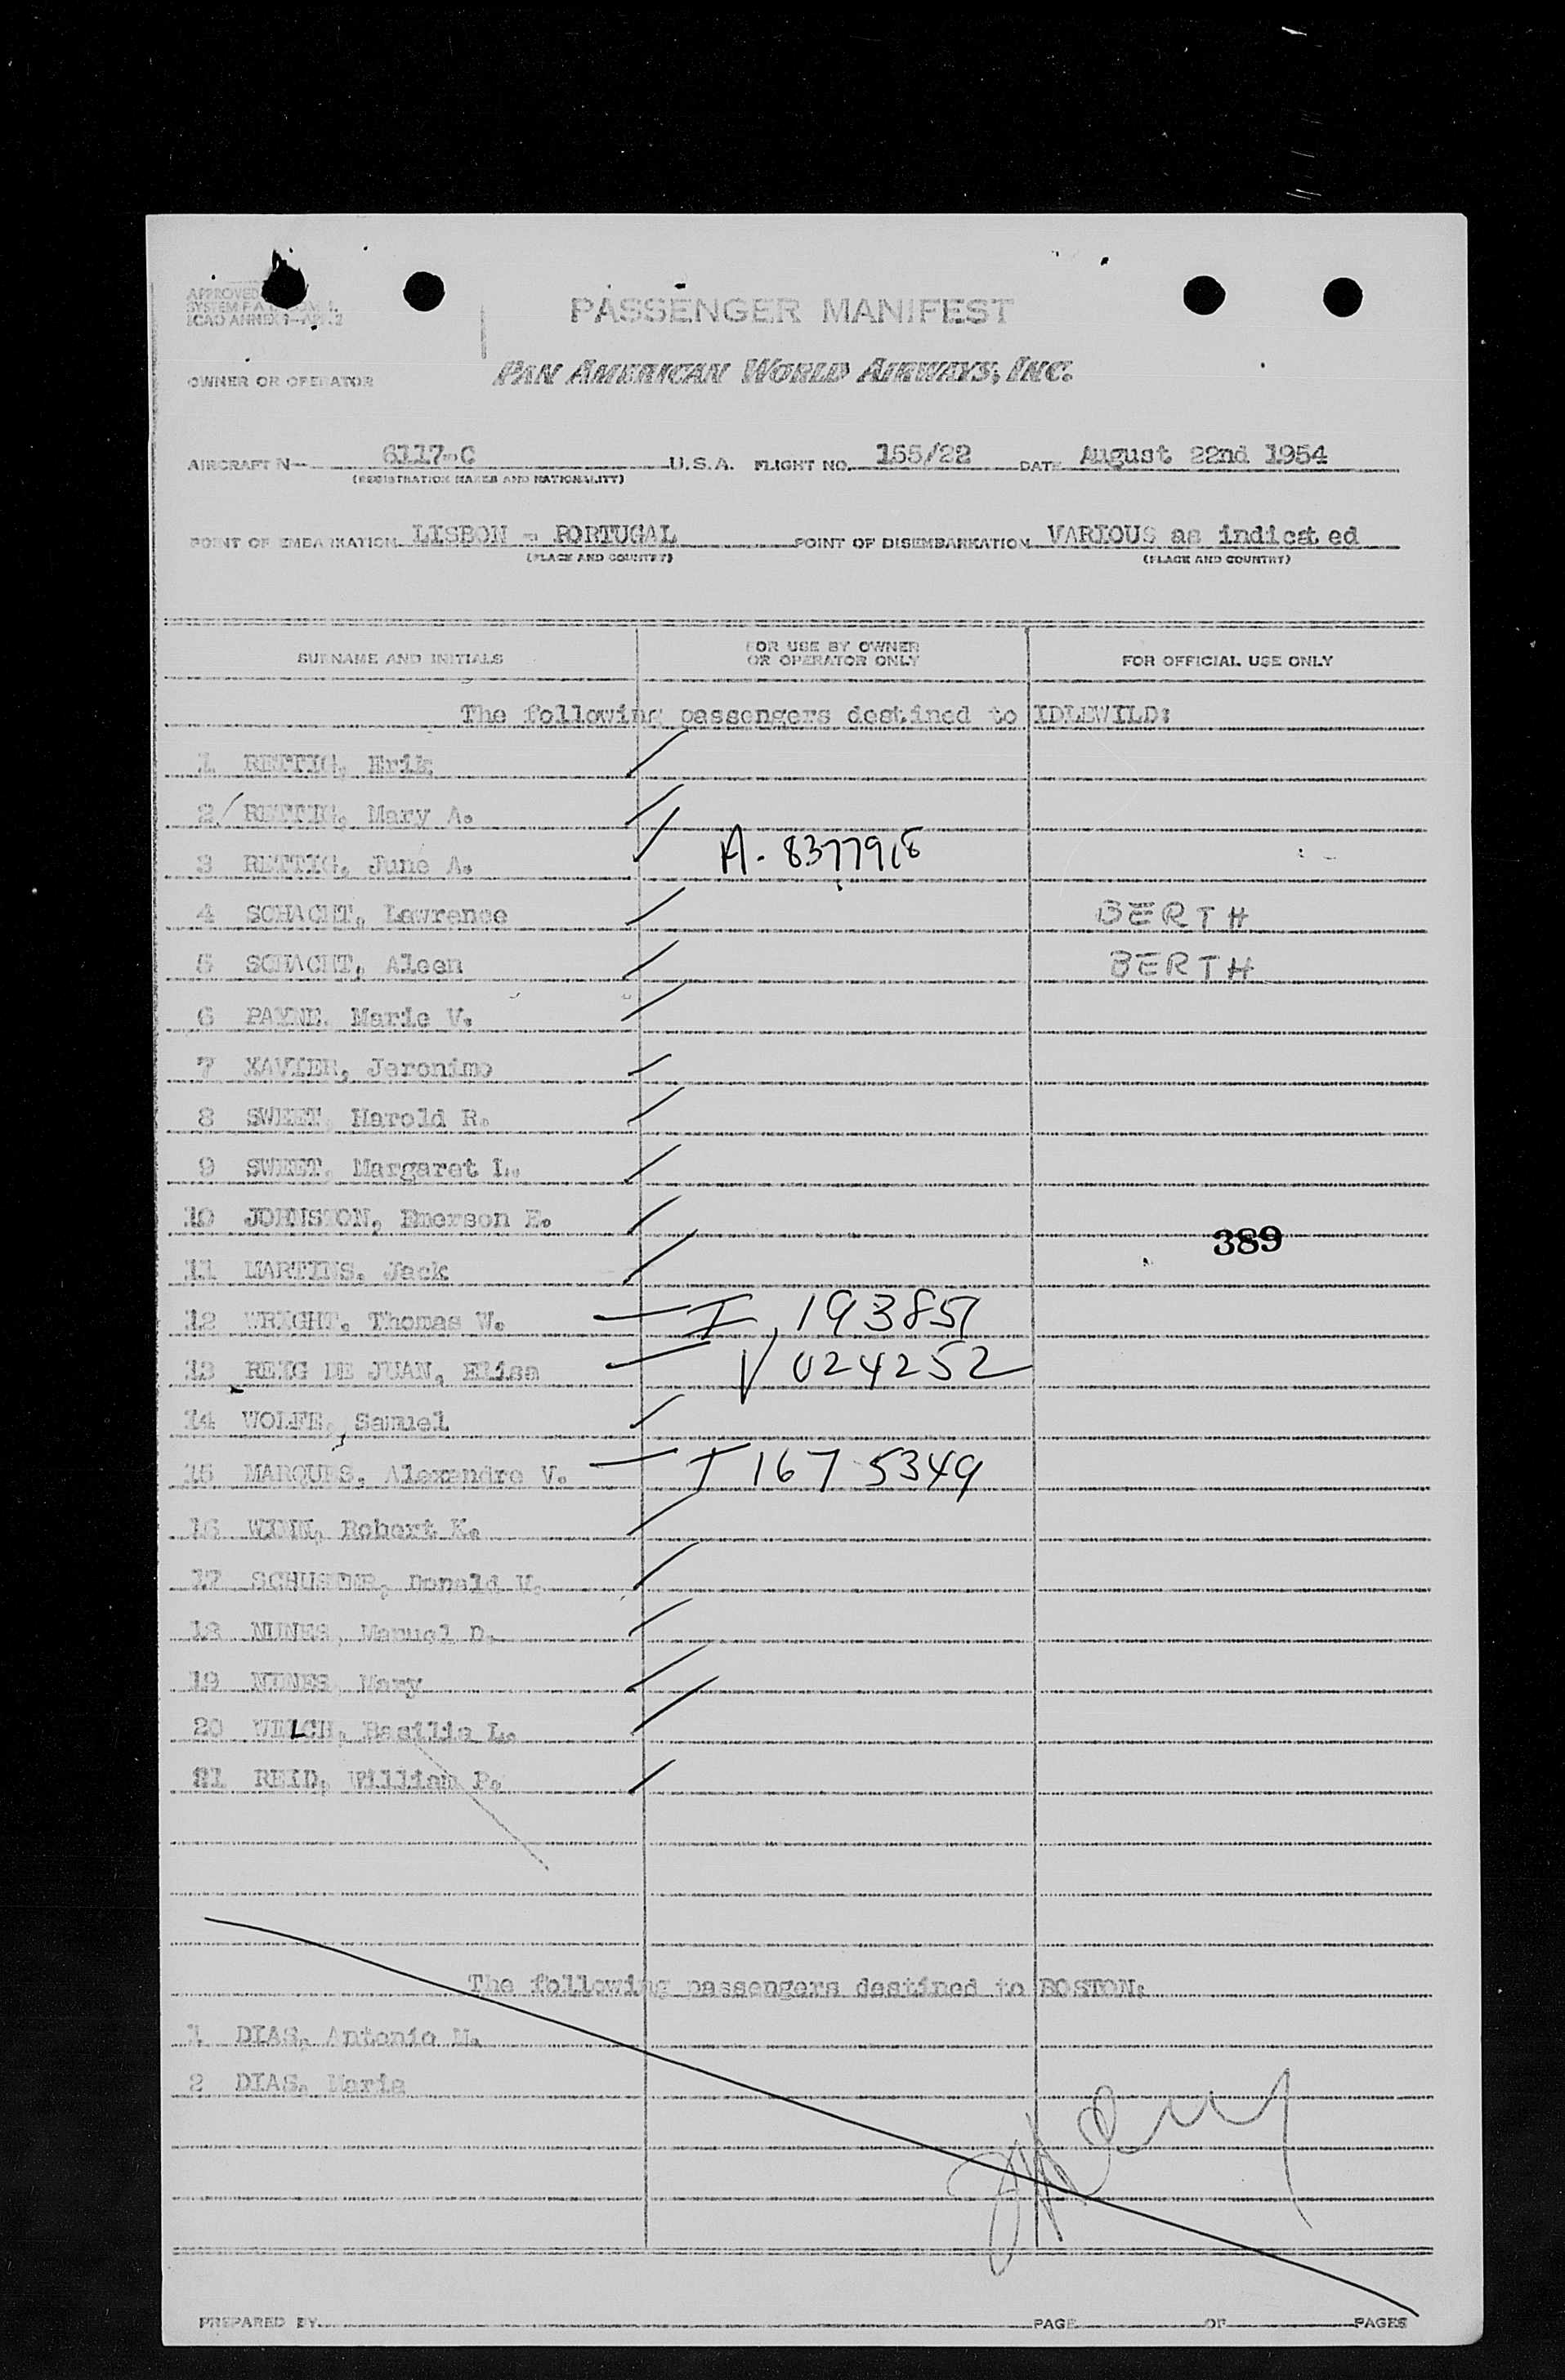 APPROVED
ICAO ANNEX 9-APP.2
PASSENGER MANIFEST
OWNER OR OPERATOR PAN AMERICAN WORLD AIRWAYS, INC.
AIRCRAFT N- 6117-C U.S.A. FLIGHT NO. 155/22 DATE August 22nd 1954
(REGISTRATION MARKS AND NATIONALITY)
POINT OF EMBARKATION LISBON - PORTUGAL POINT OF DISEMBARKATION VARIOUS as indicat ed
(PLACE AND COUNTRY) (PLACE AND COUNTRY)
SURNAME AND INITIALS FOR USE BY OWNER OR OPERATOR ONLY FOR OFFICIAL USE ONLY
The following passengers destined to IDLEWILD:
1 RETTIG, Erik
2 RETTIG, Mary A.
3 RETTIG, June A. A. 8377918
4 SCHACHT, Lawrence BERTH
5 SCHACHT, Aleen BERTH
6 PAYNE, Marie V.
7 XAVIER, Jeronimo
8 SWEET, Harold R.
9 SWEET, Margaret L.
10 JOHNSTON, Emerson E.
389
11 MARTINS, Jack
12 WRIGHT, Thomas W. I, 193851
13 REIG DE JUAN, Elisa V 024252
14 WOLFE, Samuel
15 MARQUES, Alexandre V. I 167 5349
16 WINN, Robert K.
17 SCHUSTER, Donald
18 NUNES, Manuel D.
19 NUNES, Mary
20 WELCH, Basilia L.
21 REID, William P.
The following passengers destined to BOSTON:
1 DIAS, Antonio M.
2 DIAS, Maria
PREPARED BY PAGE OF PAGES